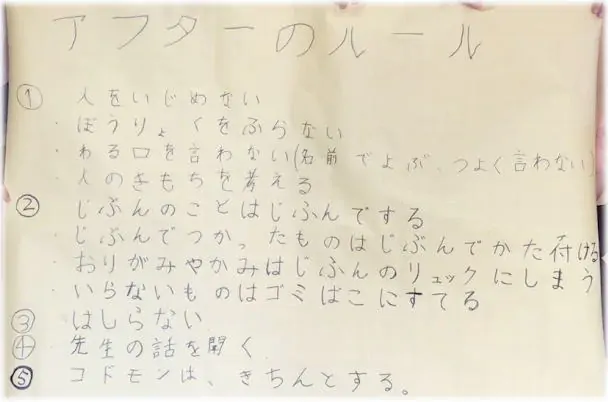 アフターのルール
① 人をいじめない
・ぼうりょくをふらない
・わる口を言わない(名前でよぶ、つよく言わない)
・人のきもちを考える
② じぶんのことはじふんでする
・じぶんでつかったものはじぶんでかた付ける
・おりがみやかみはじふんのリュックにしまう
・いらないものはゴミばこにすてる
③ はしらない
④ 先生の話を聞く
⑤ コドモンは、きちんとする。